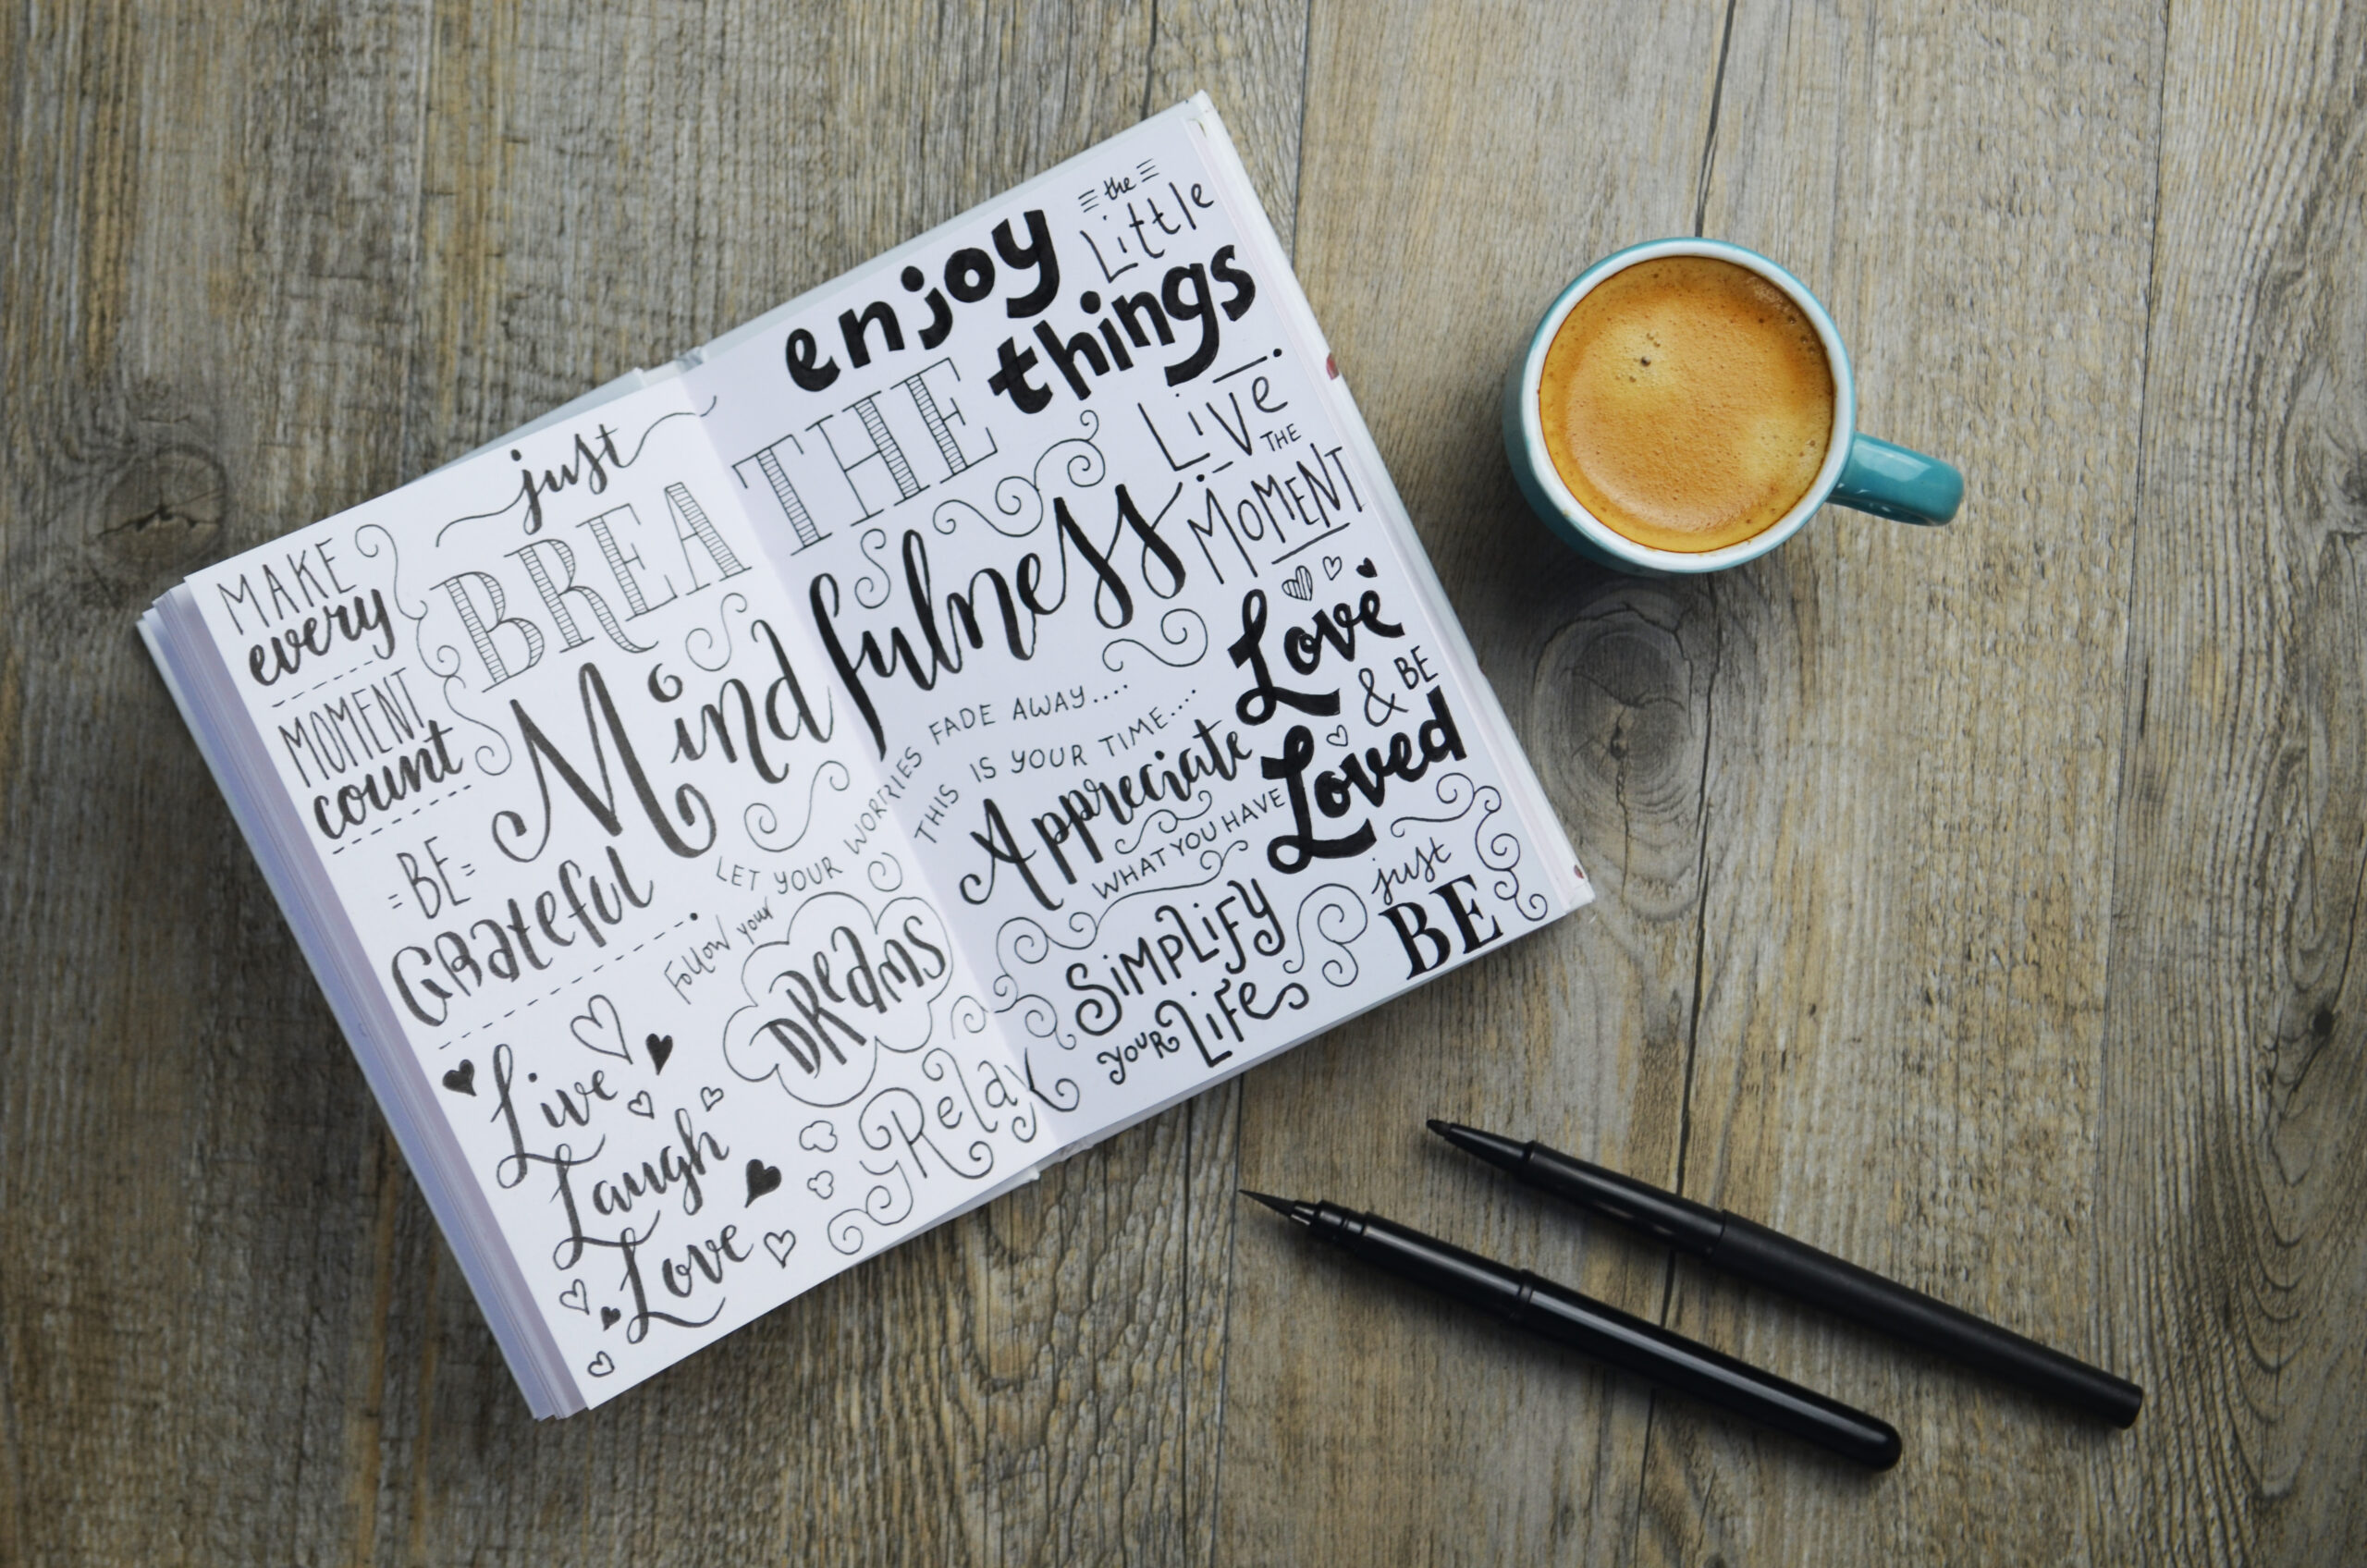 just
BREATHE
Mindfulness
MAKE
every
MOMENT
count
BE
Grateful
LET YOUR WORRIES FADE AWAY....
THIS IS YOUR TIME....
Follow your
DReamS
Live
Laugh
Love
Relax
enjoy
the
Little
things
Live
THE
MOMENT
Love
& BE
Loved
Appreciate
WHAT YOU HAVE
SiMPLiFY
YOUR LiFe
just
BE